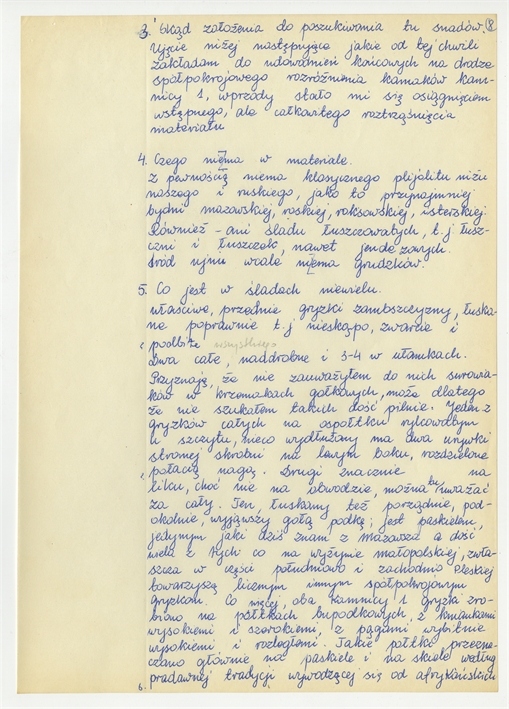 3. Skąd założenia do poszukiwania tu śnadów. 8
Ujęcie niżej następujące jakie od tej chwili
zakładam do udowadnień końcowych na drodze
spółpokrojowego rozróżnienia kamaków kam-
nicy 1, wprzódy stało mi się osiągnięciem
wstępnego, ale całkowitego roztrząśnięcia
materiału
4. Czego niema w materiale.
Z pewnością niema klasycznego plijolitu niżu
naszego i ruskiego, jako to przynajmniej
bydni mazowskiej, roskiej, roksowskiej, isterskiej
Również - ani śladu tłuszczowatych, t.j tłusz-
czni i tłuszczek, nawet jendezowych.
Śród ujmu wcale niema grudzków.
5. Co jest w śladach niewielu.
Właściwe, przednie gryzki zambszczyzny, łuska-
ne poprawnie t.j nieskąpo, zwarcie i
podbite wszystkiego
Dwa całe, naddrobne i 3-4 w ułamkach.
Przyznaję, że nie zauważyłem do nich surowia-
ków w krzemakach gałkowych, może dlatego
że nie szukałem takich dość pilnie. Jeden z
gryzków całych na ospołtku rylcowatym
u szczytu, nieco wydłużany ma dwa urywki
stromej skrobni na lewym boku, rozdzielone
połacią nagą. Drugi znacznie na
liku, choć nie na obwodzie, można by uważać
za cały. Ten, łuskany też porządnie, pod-
okolnie, wyjąwszy gołą podkę; jest paskielem,
jedynym jaki dziś znam z Mazowsza a dość
wiela z tych co na wyżynie małopolskiej, zwła-
szcza w części południowo i zachodnio Pleskiej
towarzyszą licznym innym spółpokrojowym
gryzkom. Co więcej, oba kamnicy 1 gryzki zro-
biono na półtkach łupodkowych, z kmiankami
wysokiemi i szerokiemi, z pągami wybitnie
wysokiemi i rozległemi. Takie półtki przezna-
czano głównie na paskiele i na skiele według
pradawnej tradycji wywodzącej się od afrykańskich
6.